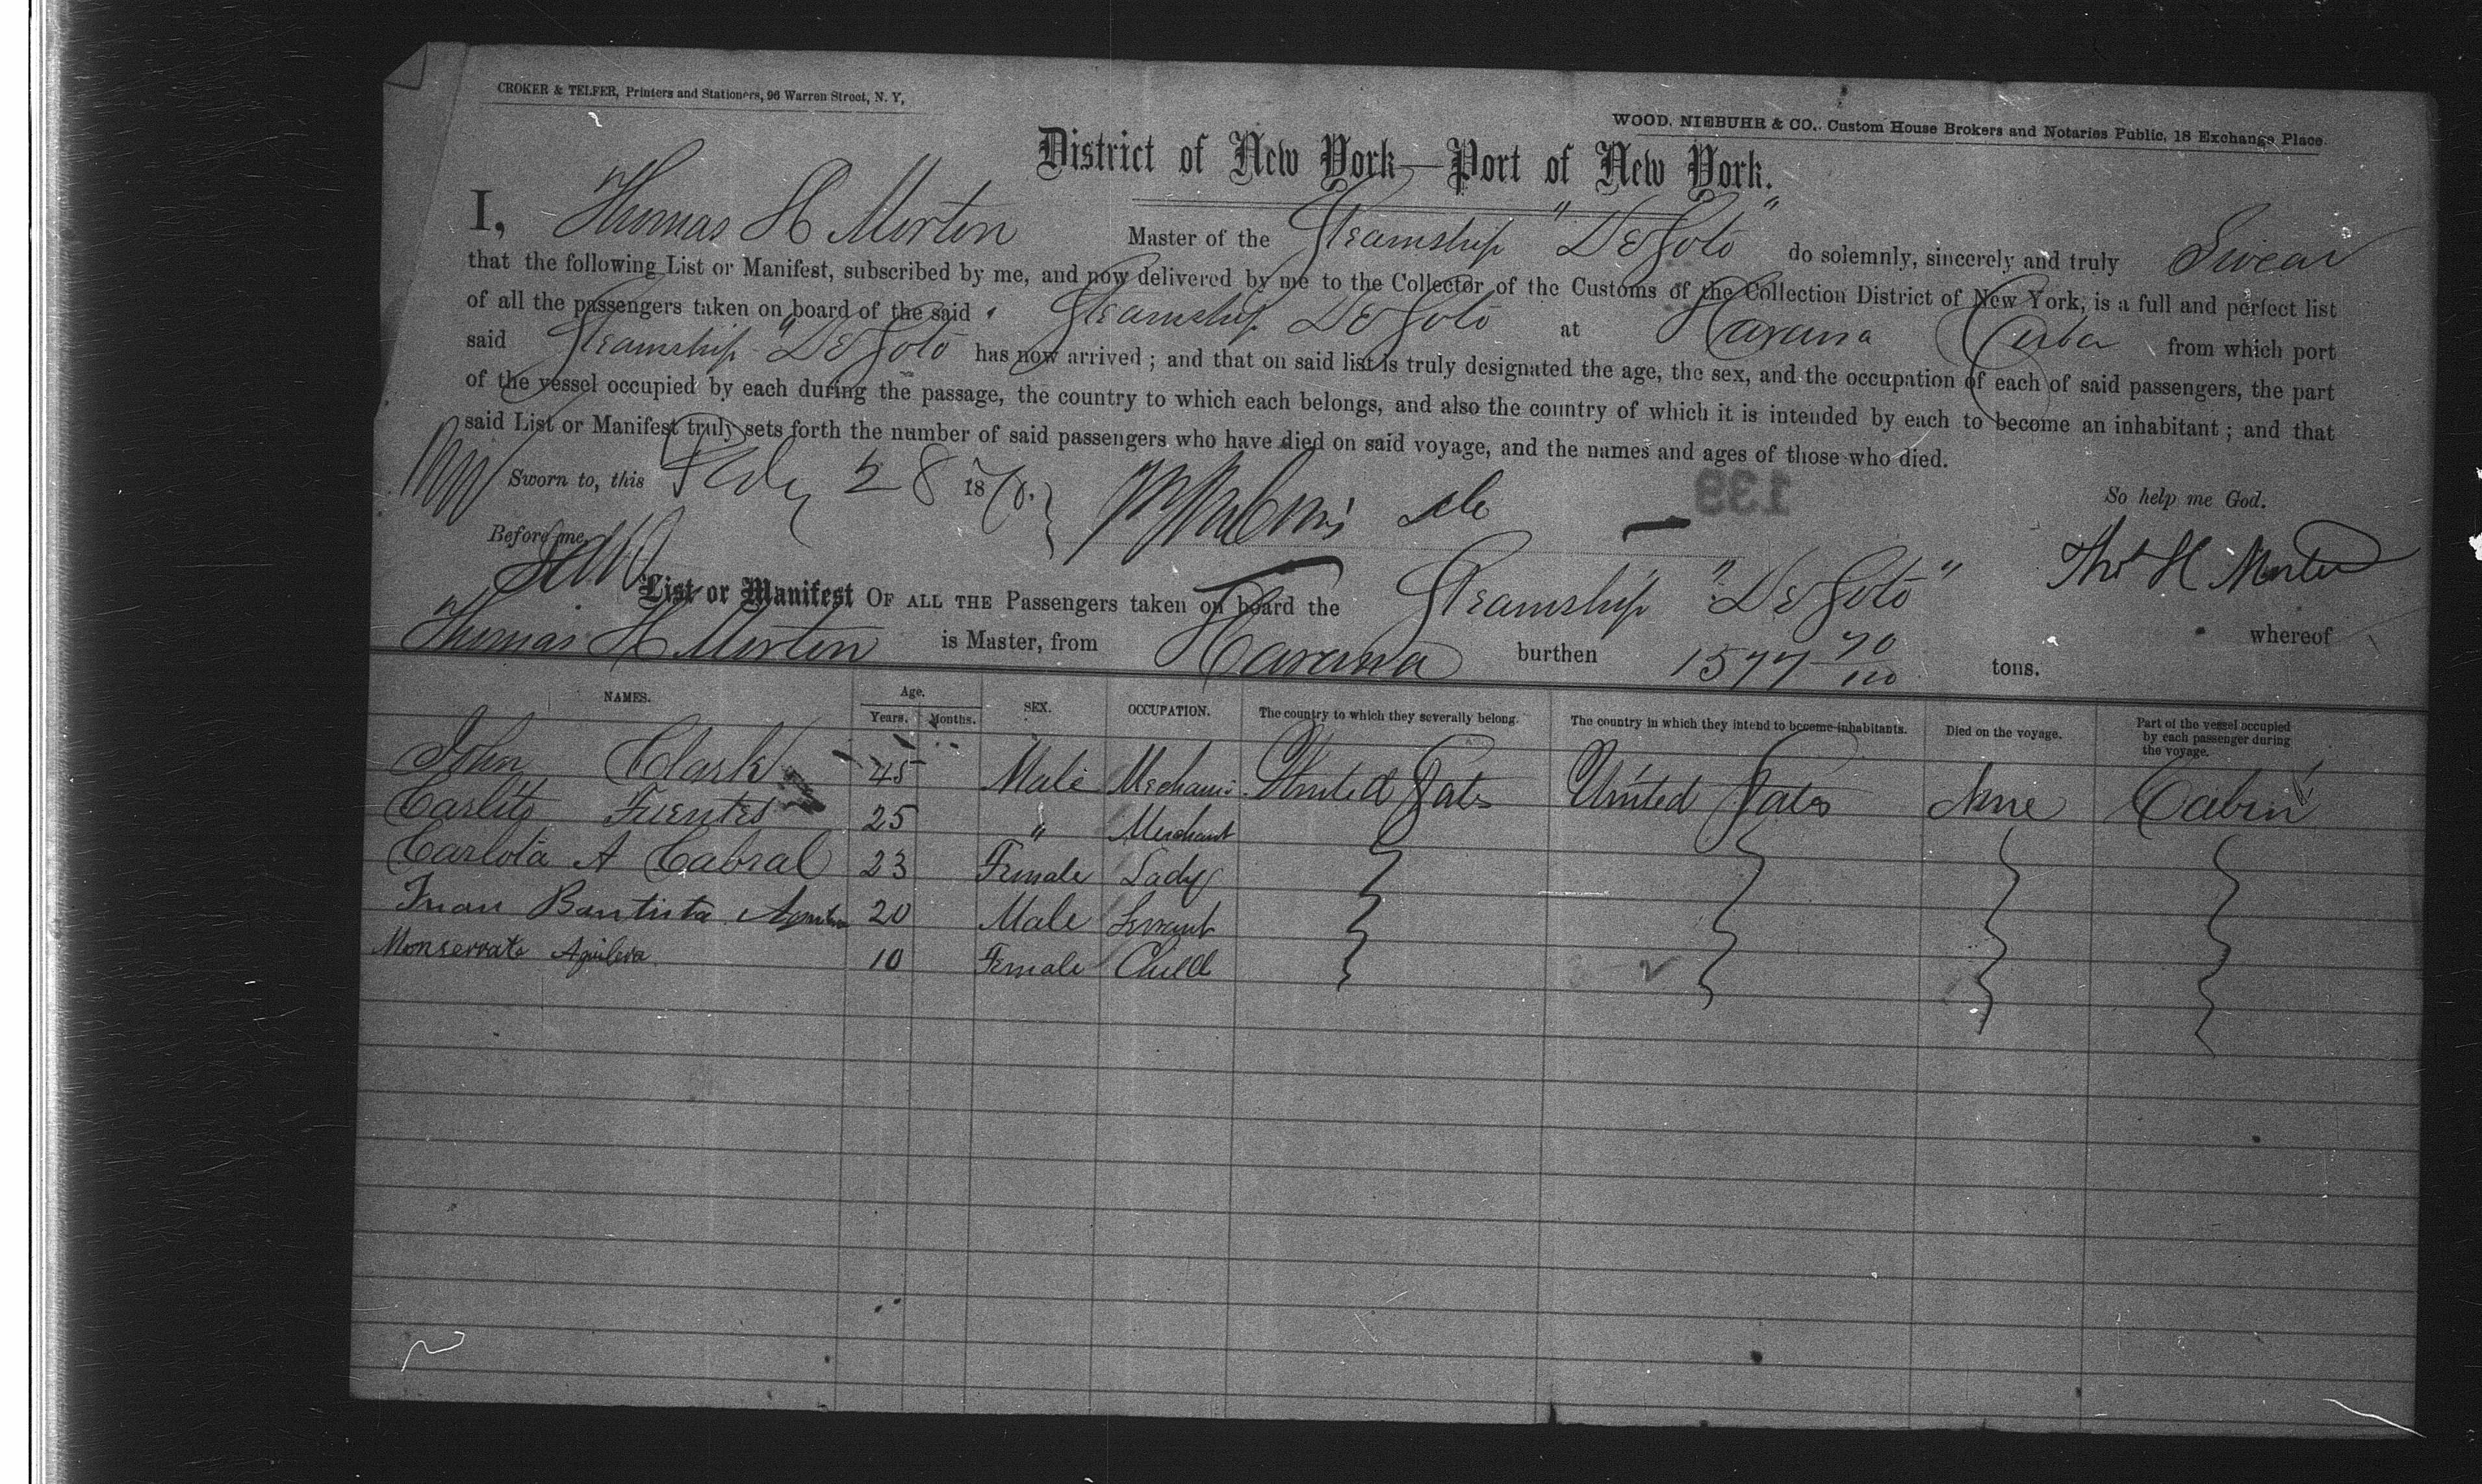 CROKER & TELFER, Printers and Stationers, 96 Warren Street, N. Y,
WOOD, NIEBUHR & CO., Custom House Brokers and Notaries Public, 18 Exchange Place.
District of New York—Port of New York.
I, Thomas H Morton Master of the Steamship "De Soto" do solemnly, sincerely and truly Swear
that the following List or Manifest, subscribed by me, and now delivered by me to the Collector of the Customs of the Collection District of New York, is a full and perfect list
of all the passengers taken on board of the said Steamship De Soto at Havana Cuba from which port
said Steamship "De Soto has now arrived ; and that on said list is truly designated the age, the sex, and the occupation of each of said passengers, the part
of the vessel occupied by each during the passage, the country to which each belongs, and also the country of which it is intended by each to become an inhabitant ; and that
said List or Manifest truly sets forth the number of said passengers who have died on said voyage, and the names and ages of those who died.
Sworn to, this Feby 28 1870.
So help me God.
139
Before me,
Thos H Morton
List or Manifest OF ALL THE Passengers taken on board the Steamship "De Soto" whereof
Thomas H Morton is Master, from Havana burthen 1577 70/100 tons.
NAMES. Age. Years. Months. SEX. OCCUPATION. The country to which they severally belong. The country in which they intend to become inhabitants. Died on the voyage. Part of the vessel occupied by each passenger during the voyage.
John Clark 45 Male Mechanic United States United States None Cabin
Carlito Fuentes 25 " Merchant
Carlota A Cabral 23 Female Lady
Juan Bautista 20 Male Servant
Monserrate Aguilera 10 Female Child